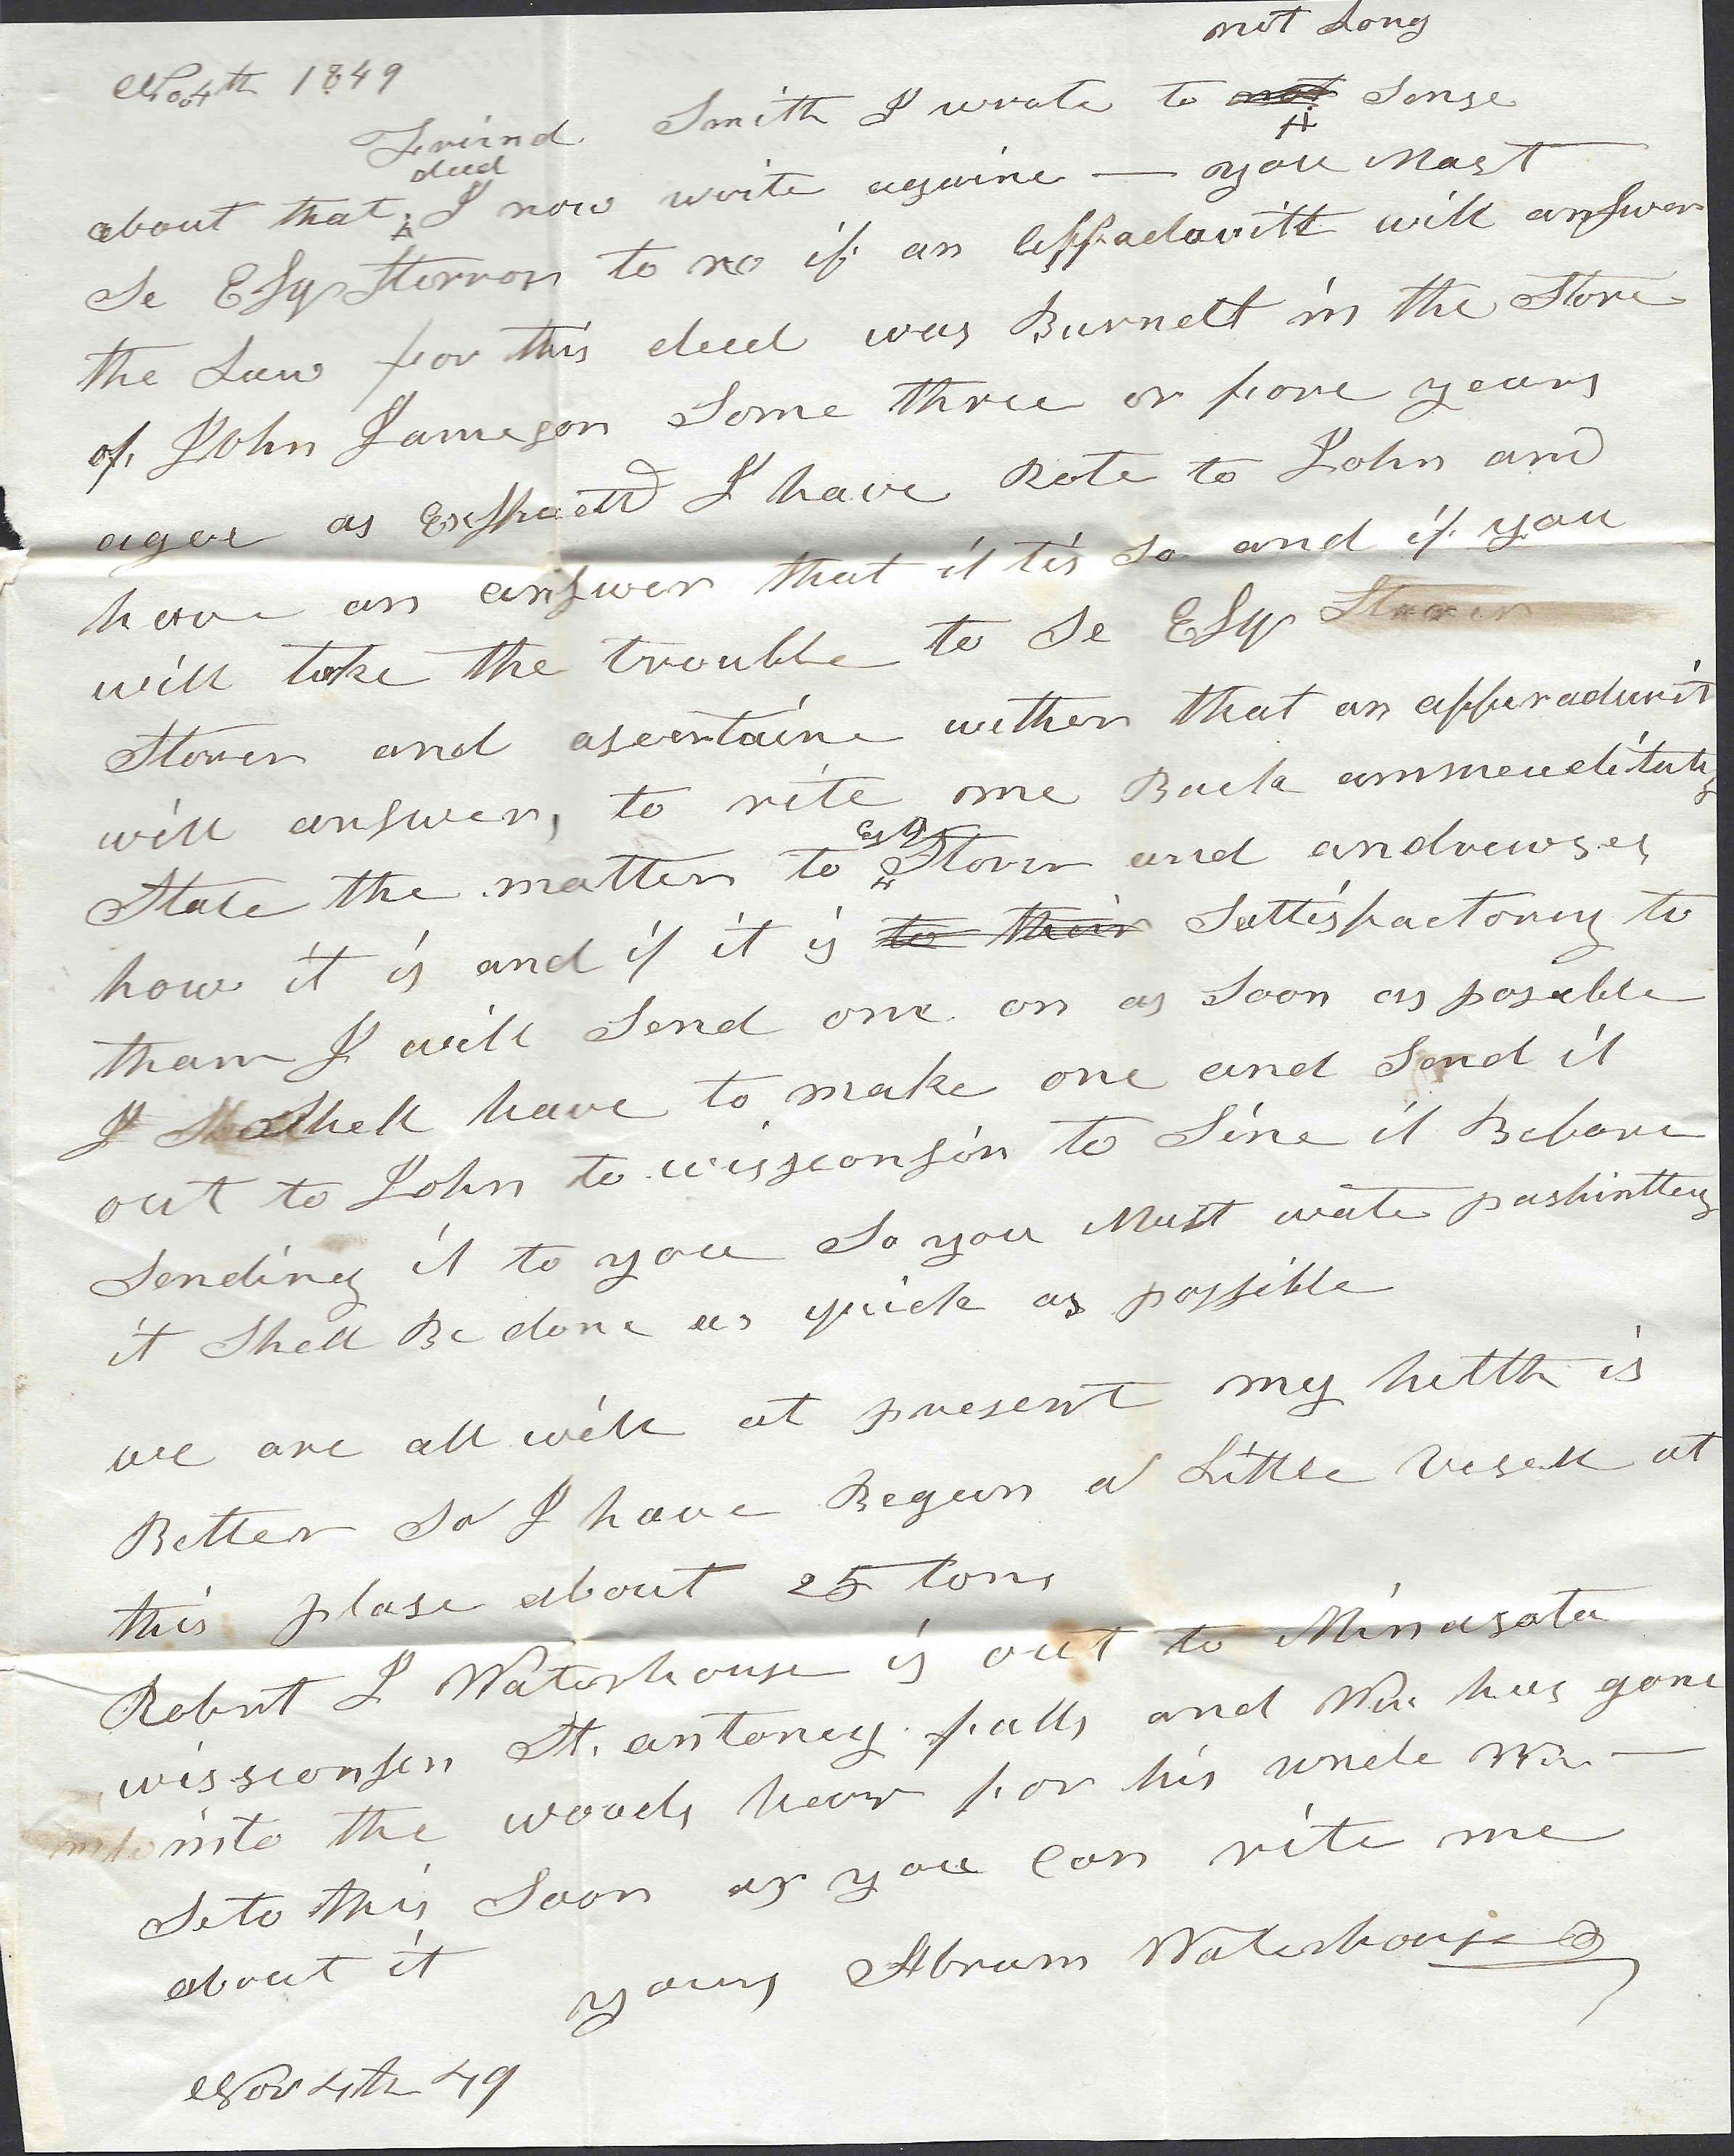 not Long
Nov 4th 1849
Freind Smith I wrote to not Sense
deed
about that I now write againe — you Mast
Se Esqr to no if an affadavitt will answer
the Law for this deed was Burnett in the Store
of John Jameson Some three or fore years
agoe as I have Rote to John and
have an answer that it tis So and if you
will take the trouble to Se Esqr Stover
Stover and asertaine wither that an
will answer, to rite me Back
Esqr
State the matter to Stover and andrewses
how it is and if it is to their Sattisfactory to
tham I will Send one on as Soon as posable
I Shell have to make one and Send it
out to John to wissconsin to Sine it Before
Sending it to you So you Must wate pashinttey
it Shell Be done as quick as possible
we are all well at present my helth is
Better So I have Begun a Little Vesell at
this plase about 25 tons
Robert J Waterhouse is out to Minasota
wissconsen St. antoney falls and Wm has gone
into the woods hear for his uncle Wm —
Se to this Soon as you Can rite me
about it yours Abram Waterhouse
Nov 4th 49